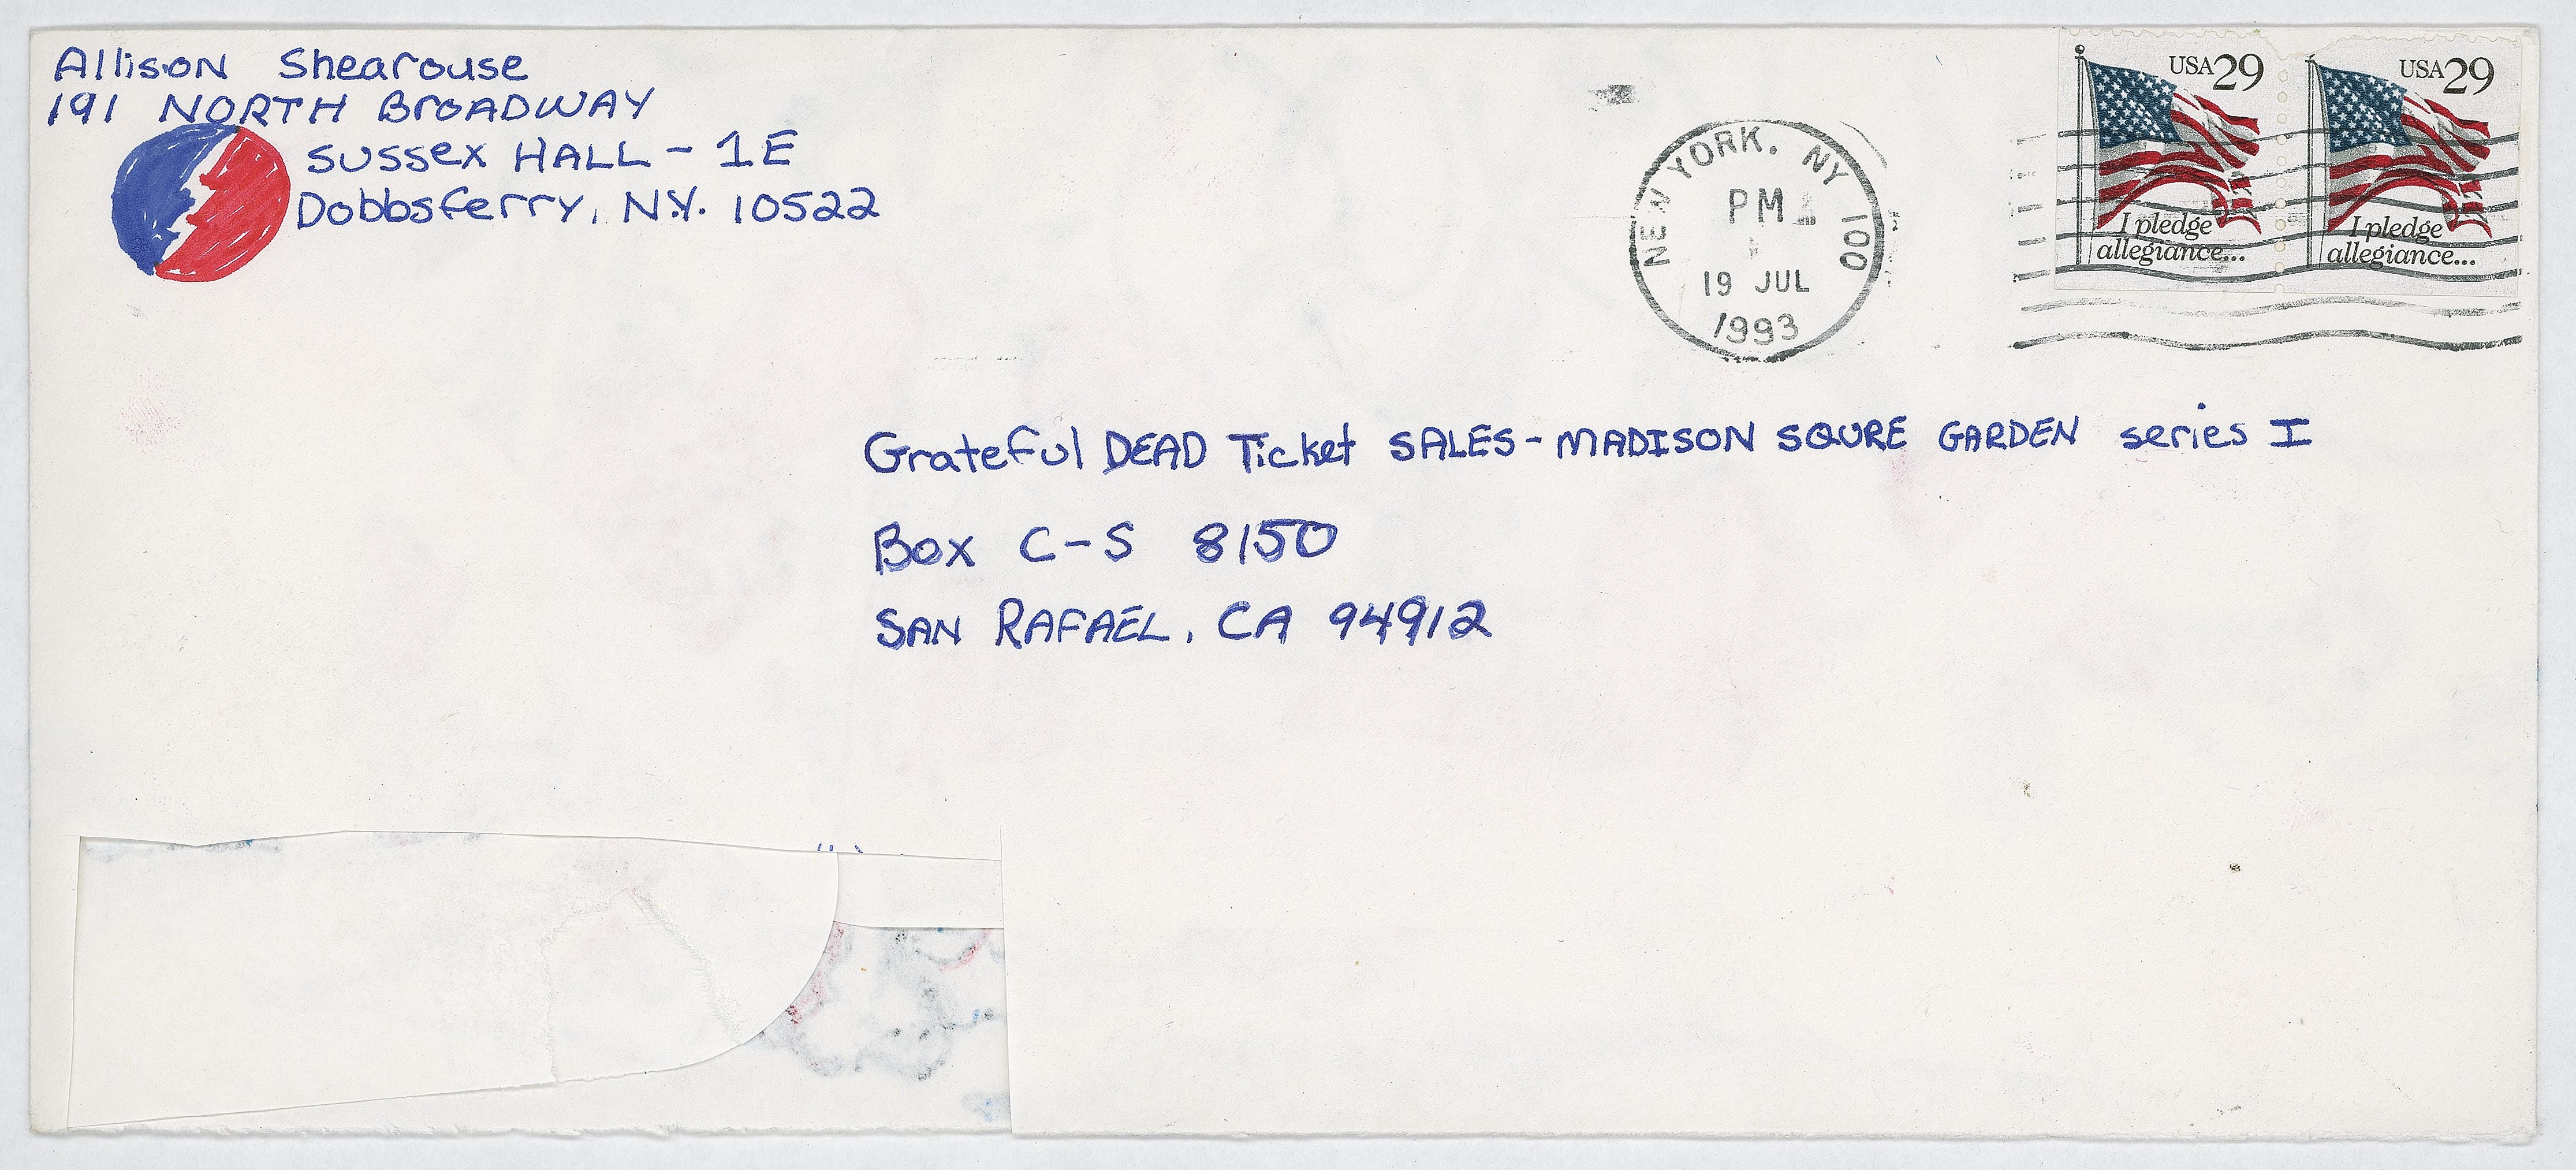 Allison Shearouse
191 NORTH BROADWAY
SUSSEX HALL - 1E
Dobbsferry, N.Y. 10522
NEW YORK, NY 100
PM
19 JUL
1993
USA 29
I pledge
allegiance...
USA 29
I pledge
allegiance...
Grateful DEAD Ticket SALES - MADISON SQURE GARDEN series I
Box C-S 8150
SAN RAFAEL, CA 94912